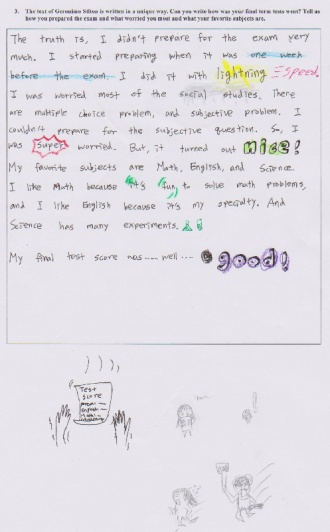 3. The text of Geronimo Stilton is written in a unique way. Can you write how your final term tests went? Tell us
how you prepared the exam and what worried you most and what your favorite subjects are.
The truth is, I didn't prepare for the exam very
much. I started preparing when it was one week
before the exam. I did it with lightning speed.
I was worried most of the social studies. There
are multiple choice problem, and subjective problem. I
couldn't prepare for the subjective question. So, I
was super worried. But, it turned out nice!
My favorite subjects are Math, English, and Science.
I like Math because it's fun to solve math problems,
and I like English because it's my specialty. And
Science has many experiments.
My final test score was.... well.... good!
TEST
SCORE